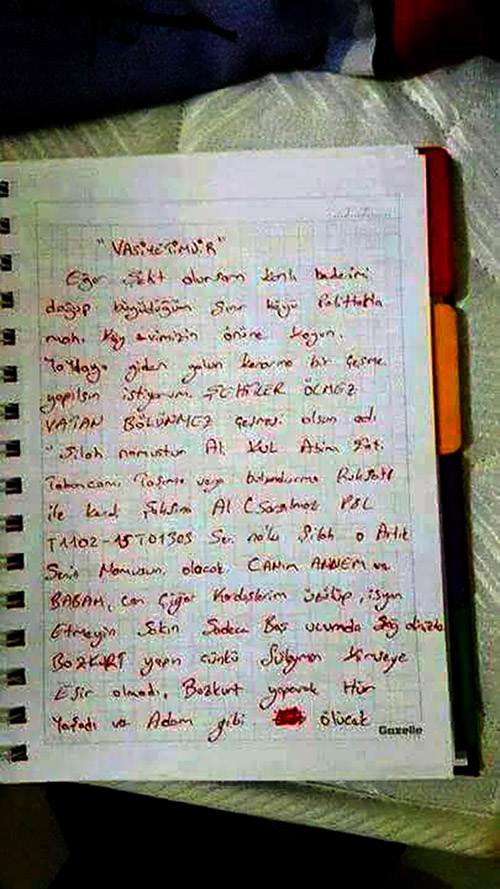 "VASİYETİMDİR"
Eğer Şehit olursam kanlı bedenimi
doğup büyüdüğüm Sınır köyü
mah. Köy evimizin önüne koyun.
Yaylaya giden yolun kenarına bir Çeşme
yapılsın istiyorum. ŞEHİTLER ÖLMEZ
VATAN BÖLÜNMEZ Çeşmesi olsun adı
"Silah namustur Ali Kul Abim
Tabancamı Taşıma veya bulundurma Ruhsatı
ile kendi Al (Sarsılmaz
T1102-15T01303 Seri no'lu Silah o Artık
Senin Namusun olacak. CANIM ANNEM ve
BABAM, Can Ciğer Kardeşlerim üzülüp, isyan
Etmeyin Sakın Sadece Baş ucumda
BOZKURT yapın çünkü Süleyman Kimseye
Esir olmadı, Bozkurt yaparak Hür
Yaşadı ve Adam gibi ölücek
Gazelle